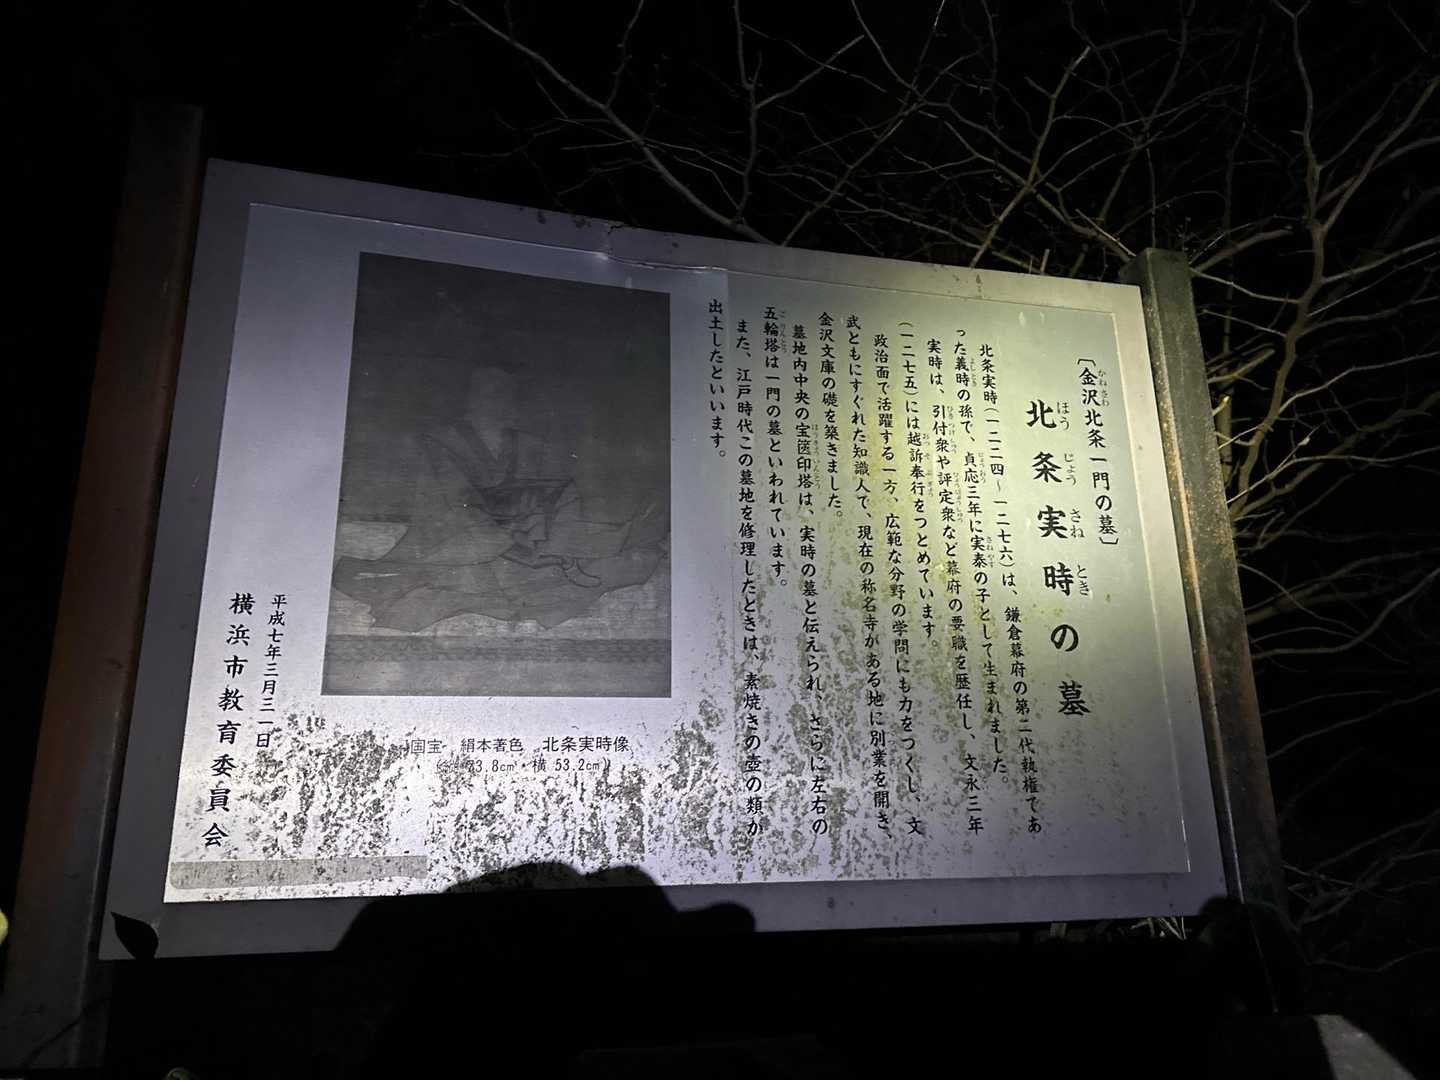 〔金沢北条一門の墓〕
北条実時の墓
北条実時(一二二四〜一二七六)は、鎌倉幕府の第二代執権であ
った義時の孫で、貞応三年に実泰の子として生まれました。
実時は、引付衆や評定衆など幕府の要職を歴任し、文永三年
(一二七五)には越訴奉行をつとめています。
政治面で活躍する一方、広範な分野の学問にも力をつくし、文
武ともにすぐれた知識人で、現在の称名寺がある地に別業を開き、
金沢文庫の礎を築きました。
墓地内中央の宝篋印塔は、実時の墓と伝えられ、さらに左右の
五輪塔は一門の墓といわれています。
また、江戸時代この墓地を修理したときは、素焼きの壺の類が
出土したといいます。
国宝 絹本著色 北条実時像
73.8cm・横 53.2cm)
平成七年三月三一日
横浜市教育委員会